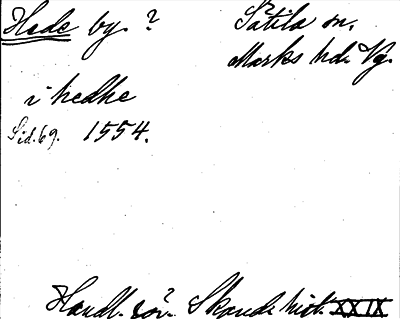 Hede by. ?
Sätila sn.
Marks hd. Vg.
i hedhe
Sid. 69. 1554.
Handl. rör. Skand. hist. XXIX